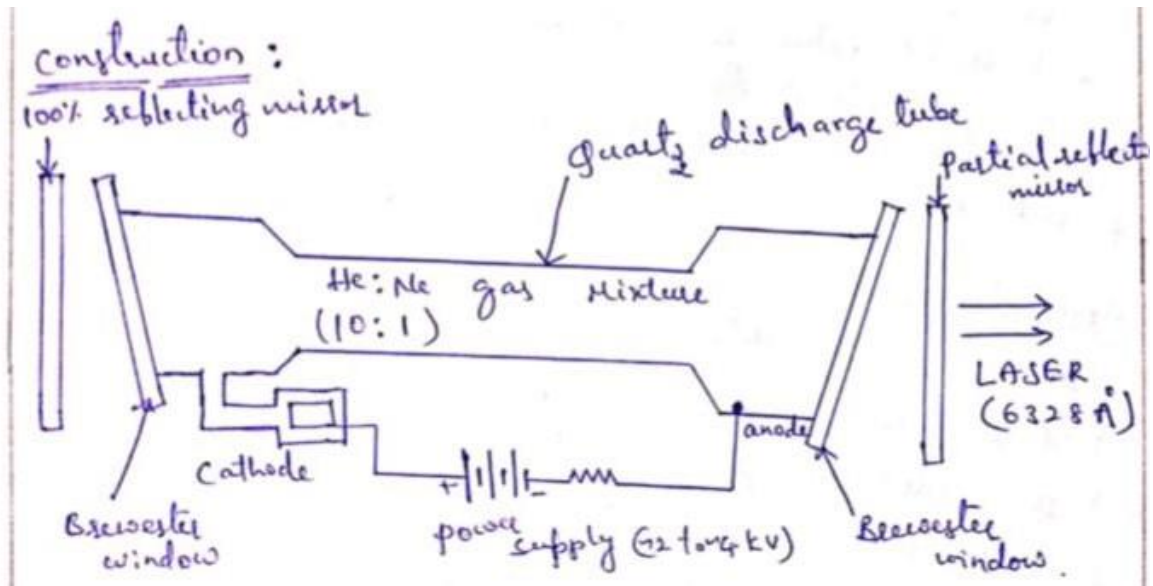 Construction :
100% reflecting mirror
Quartz discharge tube
Partial reflect
mirror
He : Ne gas Mixture
(10 : 1)
LASER
(6328 Å)
anode
Cathode
+ -
Brewester
window
power
supply
Brewester
window.